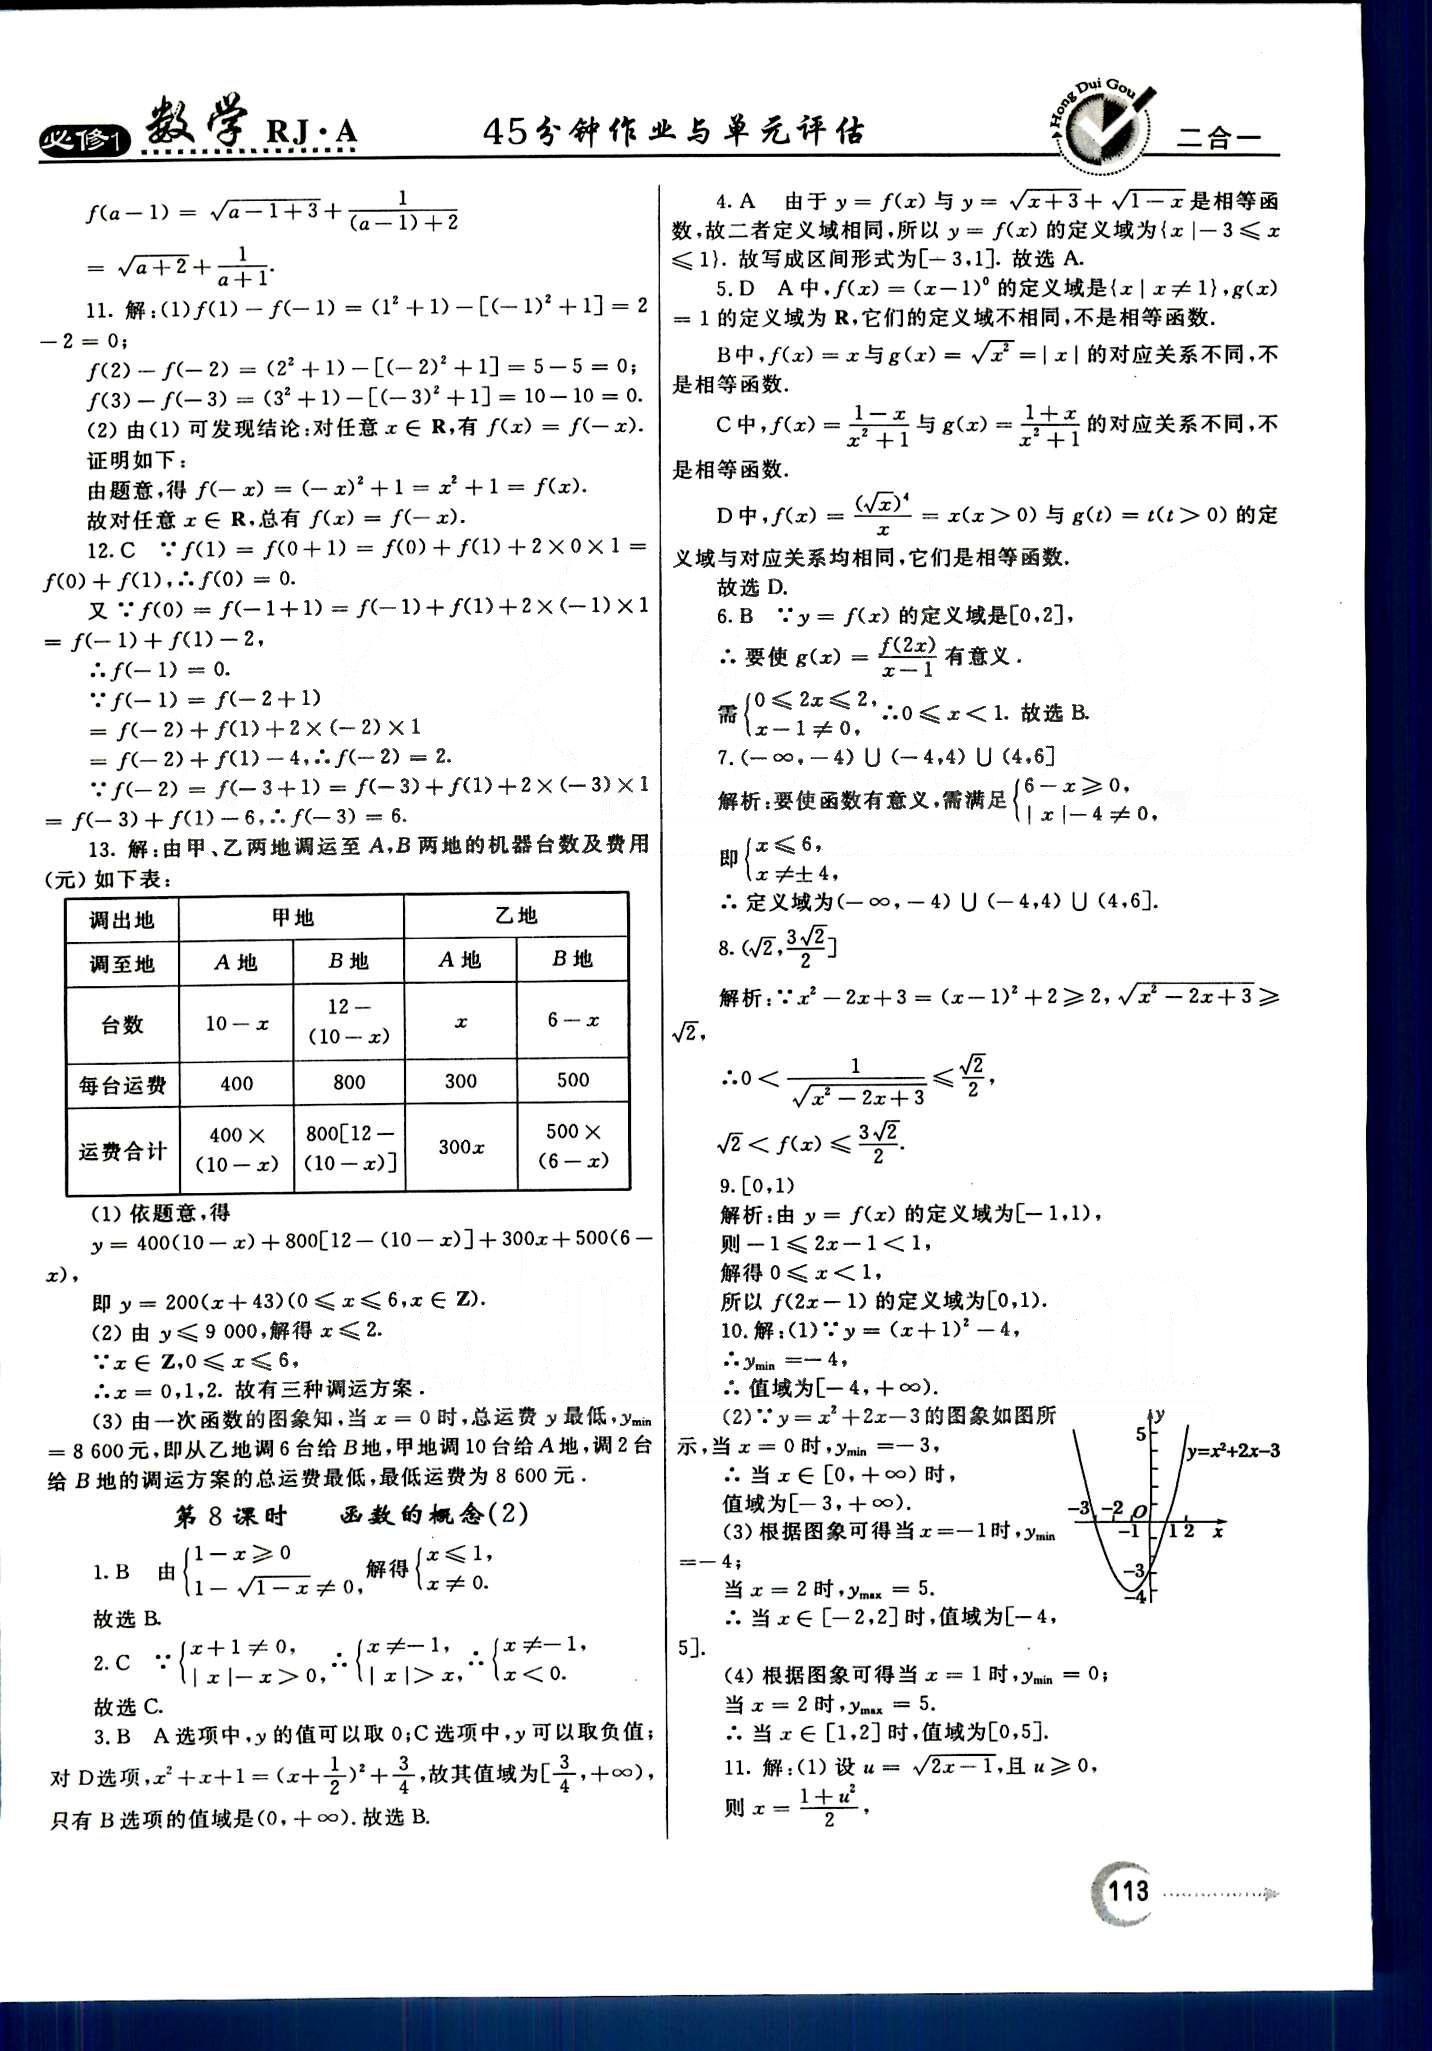 必修1 数学 RJ·A 45分钟作业与单元评估 Hong Dui Gou 二合一
f(a-1) = √(a-1+3) + 1/((a-1)+2)
= √(a+2) + 1/(a+1).
11. 解:(1)f(1)-f(-1) = (1²+1)-[(-1)²+1] = 2
-2 = 0;
f(2)-f(-2) = (2²+1)-[(-2)²+1] = 5-5 = 0;
f(3)-f(-3) = (3²+1)-[(-3)²+1] = 10-10 = 0.
(2) 由(1) 可发现结论:对任意 x∈R,有 f(x) = f(-x).
证明如下:
由题意,得 f(-x) = (-x)²+1 = x²+1 = f(x).
故对任意 x∈R,总有 f(x) = f(-x).
12. C ∵f(1) = f(0+1) = f(0)+f(1)+2×0×1 =
f(0)+f(1),∴f(0) = 0.
又∵f(0) = f(-1+1) = f(-1)+f(1)+2×(-1)×1
= f(-1)+f(1)-2,
∴f(-1) = 0.
∵f(-1) = f(-2+1)
= f(-2)+f(1)+2×(-2)×1
= f(-2)+f(1)-4,∴f(-2) = 2.
∵f(-2) = f(-3+1) = f(-3)+f(1)+2×(-3)×1
= f(-3)+f(1)-6,∴f(-3) = 6.
13. 解:由甲、乙两地调运至 A,B 两地的机器台数及费用
(元) 如下表:
调出地 甲地 乙地
调至地 A 地 B 地 A 地 B 地
台数 10-x 12-(10-x) x 6-x
每台运费 400 800 300 500
运费合计 400×(10-x) 800[12-(10-x)] 300x 500×(6-x)
(1) 依题意,得
y = 400(10-x)+800[12-(10-x)]+300x+500(6-
x),
即 y = 200(x+43)(0≤x≤6,x∈Z).
(2) 由 y≤9 000,解得 x≤2.
∵x∈Z,0≤x≤6,
∴x = 0,1,2. 故有三种调运方案.
(3) 由一次函数的图象知,当 x = 0 时,总运费 y 最低,ymin
= 8 600元,即从乙地调6台给B地,甲地调10台给A地,调2台
给 B 地的调运方案的总运费最低,最低运费为 8 600 元.
第 8 课时 函数的概念(2)
1. B 由{1-x≥0 1-√(1-x)≠0, 解得{x≤1, x≠0.
故选 B.
2. C ∵{x+1≠0, |x|-x>0, ∴{x≠-1, |x|>x, ∴{x≠-1, x<0.
故选 C.
3. B A 选项中,y 的值可以取 0;C 选项中,y 可以取负值;
对 D选项,x²+x+1 = (x+1/2)²+3/4,故其值域为[3/4,+∞),
只有 B 选项的值域是(0,+∞).故选 B.
4. A 由于 y = f(x) 与 y = √(x+3)+√(1-x) 是相等函
数,故二者定义域相同,所以 y = f(x) 的定义域为{x|-3≤x
≤1}. 故写成区间形式为[-3,1]. 故选 A.
5. D A 中,f(x) = (x-1)⁰ 的定义域是{x|x≠1},g(x)
= 1 的定义域为 R,它们的定义域不相同,不是相等函数.
B中,f(x) = x与g(x) = √x² = |x| 的对应关系不同,不
是相等函数.
C中,f(x) = (1-x)/(x²+1) 与 g(x) = (1+x)/(x²+1) 的对应关系不同,不
是相等函数.
D中,f(x) = (√x)⁴/x = x(x>0) 与 g(t) = t(t>0) 的定
义域与对应关系均相同,它们是相等函数.
故选 D.
6. B ∵y = f(x) 的定义域是[0,2],
∴要使 g(x) = f(2x)/(x-1) 有意义.
需{0≤2x≤2, x-1≠0, ∴0≤x<1. 故选 B.
7. (-∞,-4)∪(-4,4)∪(4,6]
解析:要使函数有意义,需满足{6-x≥0, |x|-4≠0,
即{x≤6, x≠±4,
∴定义域为(-∞,-4)∪(-4,4)∪(4,6].
8. (√2,3√2/2]
解析:∵x²-2x+3 = (x-1)²+2≥2,√(x²-2x+3)≥
√2,
∴0<1/√(x²-2x+3)≤√2/2,
√2<f(x)≤3√2/2.
9. [0,1)
解析:由 y = f(x) 的定义域为[-1,1),
则-1≤2x-1<1,
解得 0≤x<1,
所以 f(2x-1) 的定义域为[0,1).
10. 解:(1)∵y = (x+1)²-4,
∴ymin =-4,
∴值域为[-4,+∞).
(2)∵y=x²+2x-3的图象如图所
示,当 x = 0 时,ymin =-3,
∴当 x∈[0,+∞) 时,
值域为[-3,+∞).
(3)根据图象可得当x=-1时,ymin
=-4;
当 x = 2 时,ymax = 5.
∴当 x∈[-2,2] 时,值域为[-4,
5].
y 5 y=x²+2x-3
-3 -2 O -1 1 2 x
-3
-4
(4) 根据图象可得当 x = 1 时,ymin = 0;
当 x = 2 时,ymax = 5.
∴当 x∈[1,2] 时,值域为[0,5].
11. 解:(1) 设 u = √(2x-1),且 u≥0,
则 x = (1+u²)/2,
113